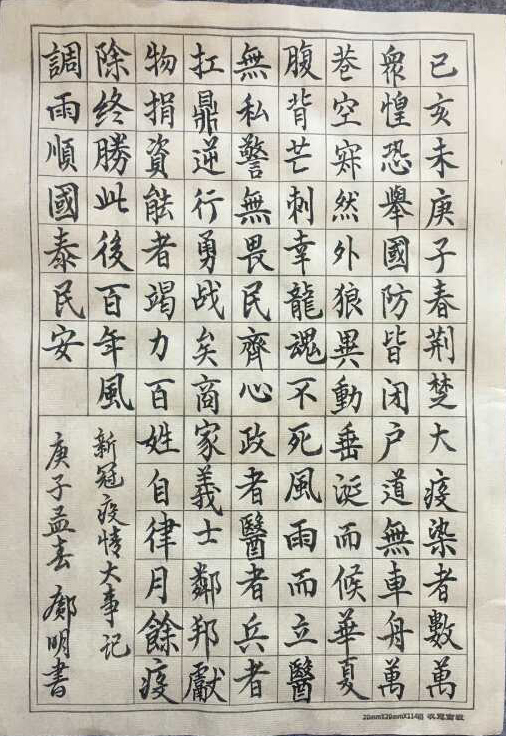 已亥未庚子春荆楚大疫染者數萬
衆惶恐舉國防皆闭户道無車舟萬
巷空寂然外狼異動垂涎而候華夏
腹背芒刺幸龍魂不死風雨而立醫
無私警無畏民齊心政者醫者兵者
扛鼎逆行勇战矣商家義士鄰邦獻
物捐資能者竭力百姓自律月餘疫
除終勝此後百年風
調雨順國泰民安
新冠疫情大事记
庚子孟春 明書
20mmX20mmX114格